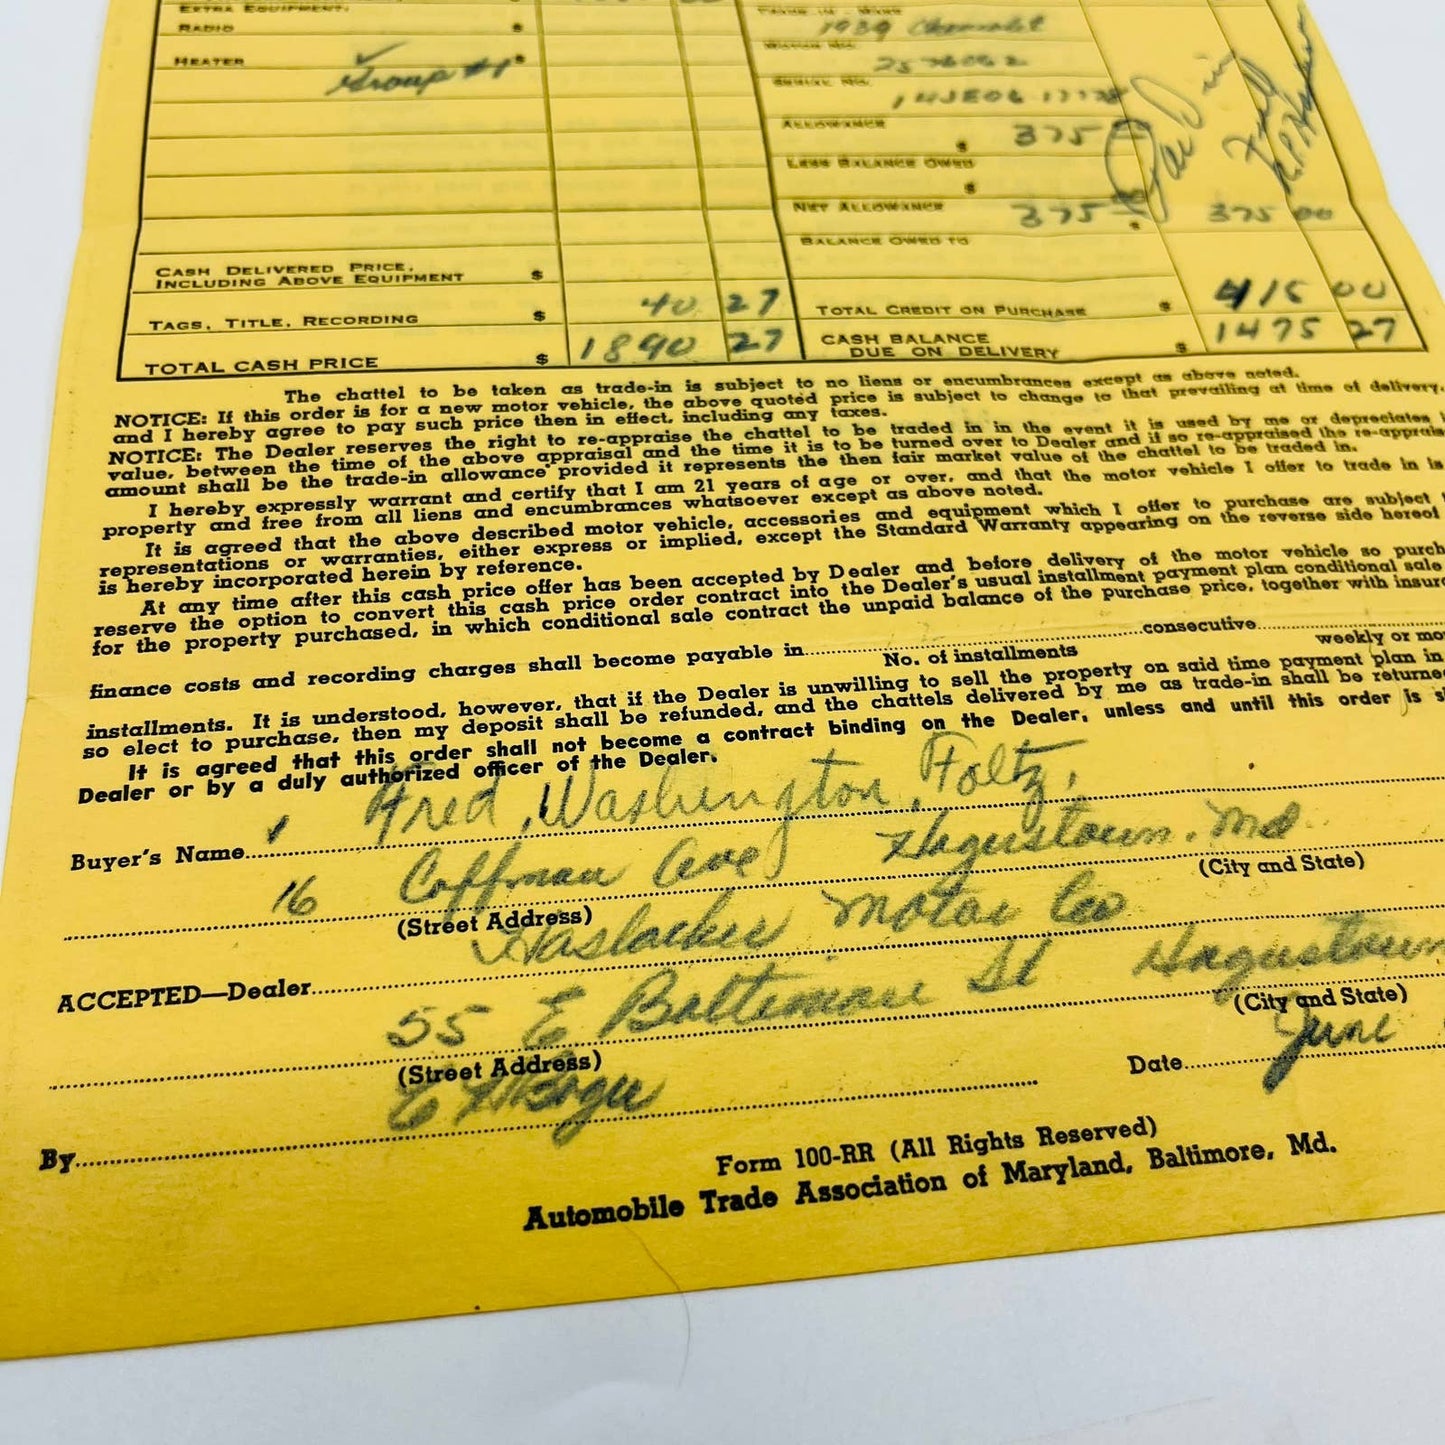 EXTRA EQUIPMENT:
RADIO $
HEATER $
✓ Group #1
CASH DELIVERED PRICE, INCLUDING ABOVE EQUIPMENT $
TAGS, TITLE, RECORDING $ 40 27
TOTAL CASH PRICE $ 1890 27
1939 Chevrolet
MOTOR NO.
SERIAL NO.
ALLOWANCE $ 375
LESS BALANCE OWED $
NET ALLOWANCE $ 375 375 00
BALANCE OWED TO
TOTAL CREDIT ON PURCHASE $ 415 00
CASH BALANCE DUE ON DELIVERY $ 1475 27
Paid in
Full
The chattel to be taken as trade-in is subject to no liens or encumbrances except as above noted.
NOTICE: If this order is for a new motor vehicle, the above quoted price is subject to change to that prevailing at time of delivery,
and I hereby agree to pay such price then in effect, including any taxes.
NOTICE: The Dealer reserves the right to re-appraise the chattel to be traded in in the event it is used by me or depreciates
value, between the time of the above appraisal and the time it is to be turned over to Dealer and if so re-appraised the re-apprais
amount shall be the trade-in allowance provided it represents the then fair market value of the chattel to be traded in.
I hereby expressly warrant and certify that I am 21 years of age or over, and that the motor vehicle I offer to trade in is
property and free from all liens and encumbrances whatsoever except as above noted.
It is agreed that the above described motor vehicle, accessories and equipment which I offer to purchase are subject
representations or warranties, either express or implied, except the Standard Warranty appearing on the reverse side hereof
is hereby incorporated herein by reference.
At any time after this cash price offer has been accepted by Dealer and before delivery of the motor vehicle so purch
reserve the option to convert this cash price order contract into the Dealer's usual installment payment plan conditional sale
for the property purchased, in which conditional sale contract the unpaid balance of the purchase price, together with insur
finance costs and recording charges shall become payable in consecutive
No. of installments weekly or mo
installments. It is understood, however, that if the Dealer is unwilling to sell the property on said time payment plan in
so elect to purchase, then my deposit shall be refunded, and the chattels delivered by me as trade-in shall be returned
It is agreed that this order shall not become a contract binding on the Dealer, unless and until this order is s
Dealer or by a duly authorized officer of the Dealer.
Buyer's Name ✓ Fred Washington Foltz,
16 Coffman Ave Hagerstown. Md
(Street Address) (City and State)
ACCEPTED—Dealer Haslacker Motor Co
55 E Baltimore St Hagerstown
(Street Address) (City and State)
By Date June
Form 100-RR (All Rights Reserved)
Automobile Trade Association of Maryland, Baltimore, Md.